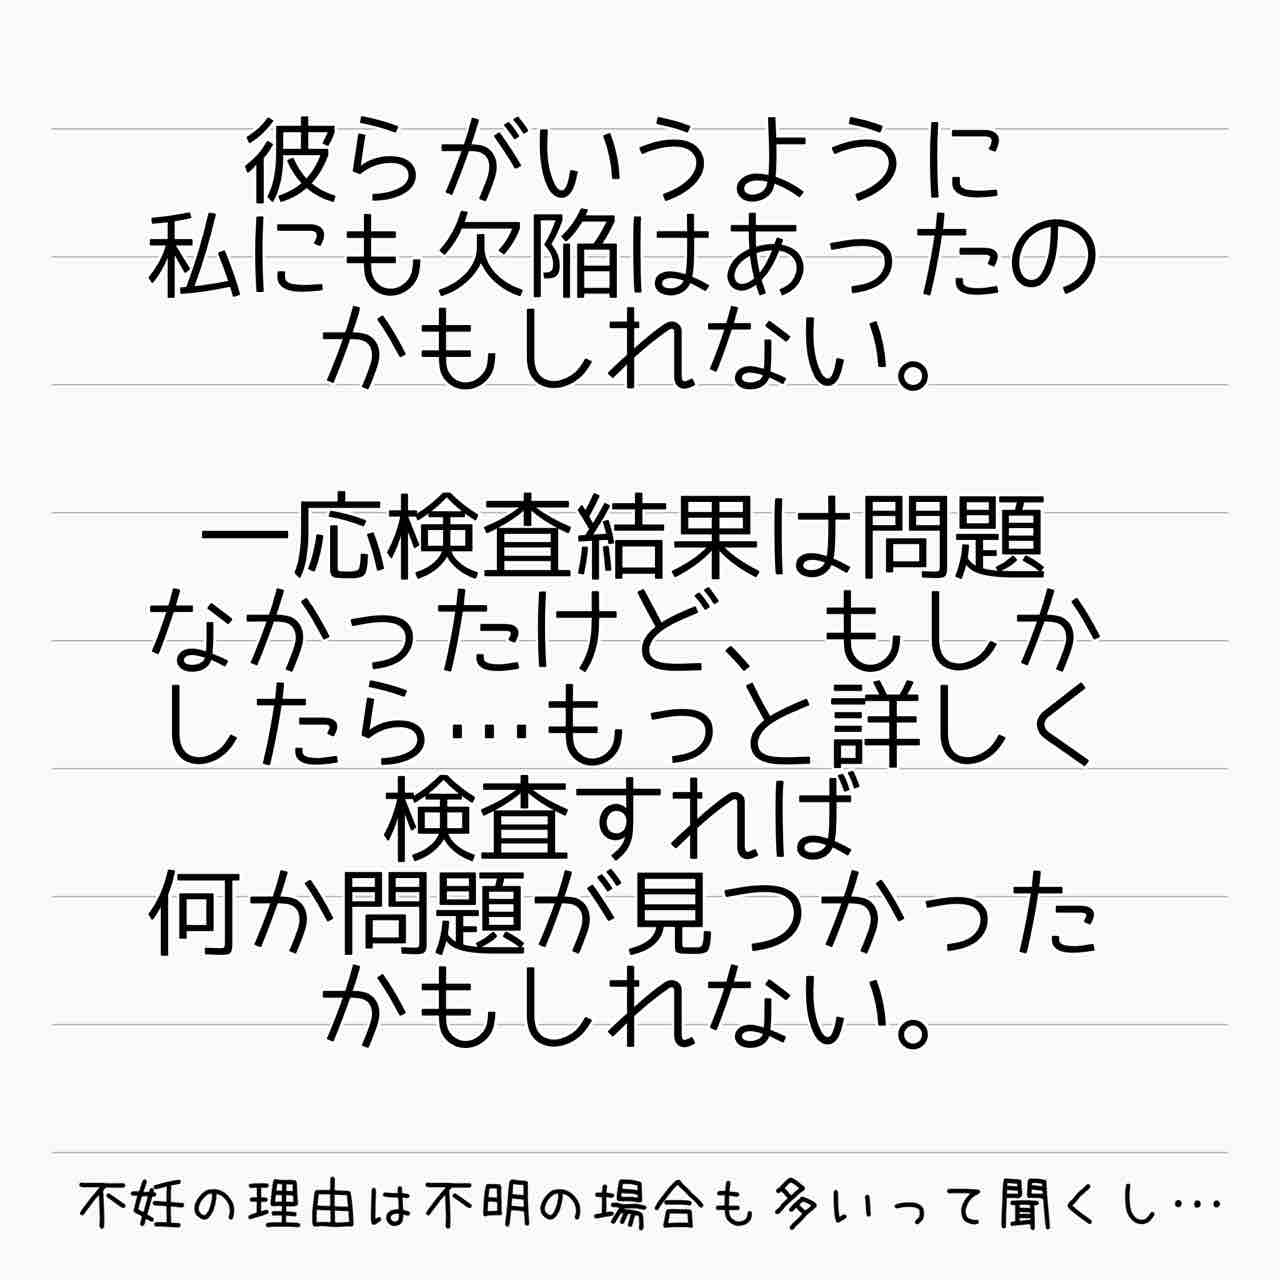 彼らがいうように
私にも欠陥はあったの
かもしれない。
一応検査結果は問題
なかったけど、もしか
したら…もっと詳しく
検査すれば
何か問題が見つかった
かもしれない。
不妊の理由は不明の場合も多いって聞くし…